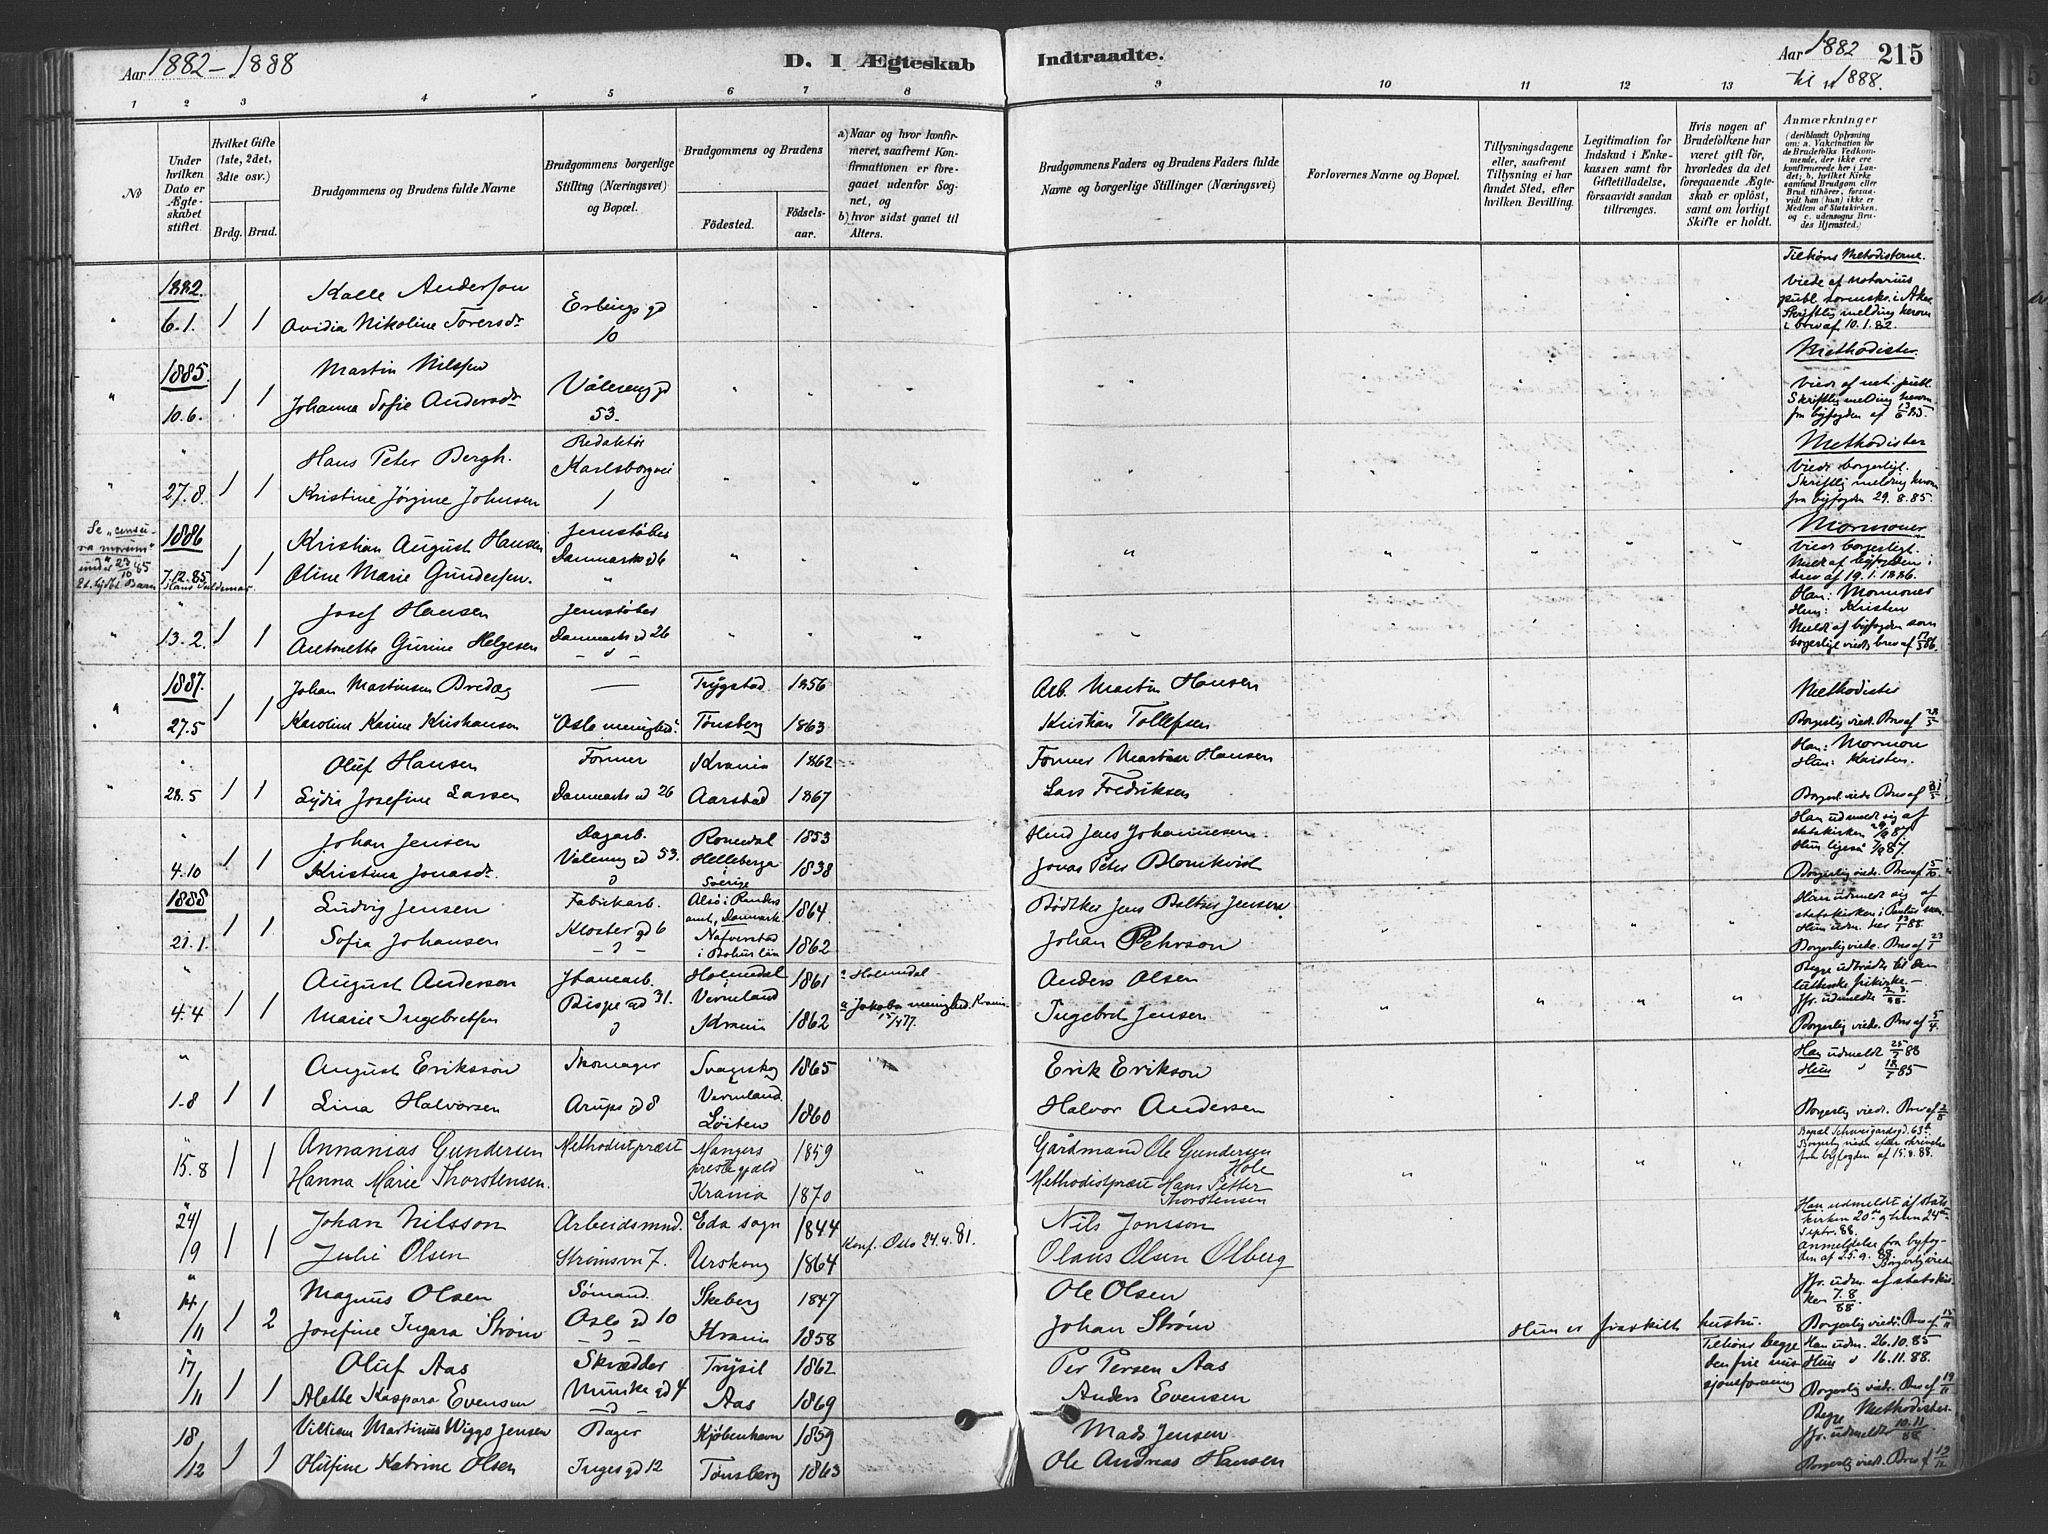 Aar 1882-1888
D. I Ægteskab
Indtraadte.
Aar 1882 til 1888.
215
1 2 3 4 5 6 7 8 9 10 11 12 13 14
No
Under hvilken Dato er Ægteskabet stiftet.
Hvilket Gifte (1ste, 2det, 3die osv.)
Brdg. Brud.
Brudgommens og Brudens fulde Navne
Brudgommens borgerlige Stilling (Næringsvei) og Bopæl.
Brudgommens og Brudens
Födested.
Födselsaar.
a) Naar og hvor konfirmeret, saafremt Konfirmationen er foregaaet udenfor Sognet, og
b) hvor sidst gaaet til Alters.
Brudgommens Faders og Brudens Faders fulde Navne og borgerlige Stillinger (Næringsvei)
Forlovernes Navne og Bopæl.
Tillysningsdagene eller, saafremt Tillysning ei har fundet Sted, efter hvilken Bevilling.
Legitimation for Indskud i Enkekassen samt for Giftetilladelse, forsaavidt saadan tiltrænges.
Hvis nogen af Brudefolkene har været gift för, hvorledes da det foregaaende Ægteskab er oplöst, samt om lovligt Skifte er holdt.
Anmærkninger
(deriblandt Oplysning om: a. Vakcination for de Brudefolks Vedkommende, der ikke ere konfirmerede her i Landet; b. hvilket Kirkesamfund Brudgom eller Brud tilhörer, forsaavidt han (hun) ikke er Medlem af Statskirken, og c. udensogns Brudes Hjemsted.)
1882. 6.1. 1 1
Kalle Anderson
Avidia Nikoline Torersdr
Erlings gd 10
Tilhøre Methodisterne.
Viede af notarius publ.
Skriftlig melding herom i brev af 10.1.82.
1885. 10.6. 1 1
Martin Nilssen
Johanna Sofie Andersdr
Vålereng gd 53.
Methodister.
Viede af not. publ.
Skriftlig melding herom fra byfogden af 13/6 85.
27.8. 1 1
Hans Peter Bergh.
Kristine Jørgine Johnsen
Redaktør
Karlsborgvei 1
Methodister
Viede borgerligt.
Skriftlig melding herom fra byfogden 29.8.85.
Se "censura morum" under 23/10 85
1886 7.12.85 1 1
Kristian August Hansen
Oline Marie Gundersen.
Jernstøber
Danmarks gd 6
Mormoner
Viede borgerligt.
Meldt af byfogden i brev af 19.1.1886.
13.2. 1 1
Josef Hansen
Antonette Gurine Helgesen
Jernstøber
Danmarks gd 26
Han: Mormoner
Hun: Kristen
Meldt af byfogden som borgerligt viede brev af 17/3 86.
1887. 27.5 1 1
Johan Martinsen Bredag
Karoline Karine Kristiansen
"Oslo menighed".
Trygstad 1856
Tønsberg 1863
Arb. Martin Hansen
Kristian Tollefsen
Methodister
Borgerlig viede. Brev af 28/5
28.5 1 1
Oluf Hansen
Lydia Josefine Larsen
Former
Danmarks gd 26
Krania 1862
Aarstad 1867
Former Martin Hansen
Lars Fredriksen
Han: Mormon
Hun: Kristen.
Borgerl. viede Brev af 31/5
4.10 1 1
Johan Jensen
Kristina Jonasdr.
Dagarb.
Valereng gd 53.
Romedal 1853
Helleberga Sverige 1838
Hmd Jens Johannesen
Jonas Peter Blomkvist
Han udmeldt sig af statskirken 29/9 87
Hun ligeså 7/9 87.
Borgerlig viede. Brev af 5/10
1888 21.1. 1 1
Ludvig Jensen
Sofia Johansen
Fabrikarb.
Kloster gd 6
Alsö i Randers amt, Danmark 1864.
Nafverstad i Bohuslän 1862
Bødtker Jens Baltser Jensen
Johan Pehrson
Han udmeldt sig af statskirken i Paulus men.
Hun udm. her 13/1 88.
Borgerlig viede. Brev af 23/1
4.4 1 1
August Anderson
Marie Ingebretsen
Jbanearb.
Bispe gd 31.
Holmedal i Vermland 1861
Krania 1862
a Holmedal
a Jakobs menighed. Krania 15/4 77.
Anders Olsen
Ingebret Jensen
Begge udtrådte til den lutherske frikirke. –
Jfr. udmeldte 2.3/88.
Borgerlig viede. Brev af 5/4.
1.8 1 1
August Eriksson
Lina Halvorsen
Skomager
Arups gd 8
Svanskog Vermland. 1865
Løiten 1860
Erik Erikson
Halvor Andersen
Han udmeldt 25/7 88
Hun " 18/7 85
Borgerlig viede. Brev af 2/8
15.8 1 1
Annanias Gundersen
Hanna Marie Thorstensen.
Methodistpræst
Mangers prestegjæld 1859
Krania 1870
Gårdmand Ole Gundersen Hole
Methodistpræst Hans Petter Thorstensen
Bopæl Schweigaardsgd. 63b.
Borgerlig viede efter skrivelse fra byfogden af 15.8.88.
24/9 1 1
Johan Nilsson
Julie Olsen
Arbeidsmnd.
Strømsvn 7.
Eda sogn 1844
Urskoug 1864
Konf. Oslo 24.4.81.
Nils Jonsson
Olaus Olsen Olberg
Han udmeldt af statskirken 20de og hun 24de Septbr. 88.
Anmeldelse fra byfogden af 25.9.88. Borgerlig viede
14/11 1 2
Magnus Olsen
Josefine Ingara Strøm
Sømand.
Oslo gd 10
Skeberg 1847
Krania 1858
Ole Olsen
Johan Strøm
Hun er fraskilt hustru.
Jfr. udm. af statskirken 7.8/88
Borgerlig viede. Brev af 15/11
17/11 1 1
Oluf Aas
Alette Kaspara Evensen
Skrædder
Munke gd 4
Trysil 1862
Aas 1869
Per Persen Aas
Anders Evensen
Tilhøre Begge den frie missionsforening
Han udm. 26.10.85
Hun " 16.11.88.
Borgerlig viede. Brev af 19/11
18/12 1 1
Villiam Martinus Wiggo Jensen
Olufine Katrine Olsen
Bager
Inges gd 12
Kjøbenhavn 1859
Tønsberg 1863
Mads Jensen
Ole Andreas Hansen
Begge Methodister.
Jfr. udmeldte 10.11/88
Borgerlig viede. Brev af 19/12